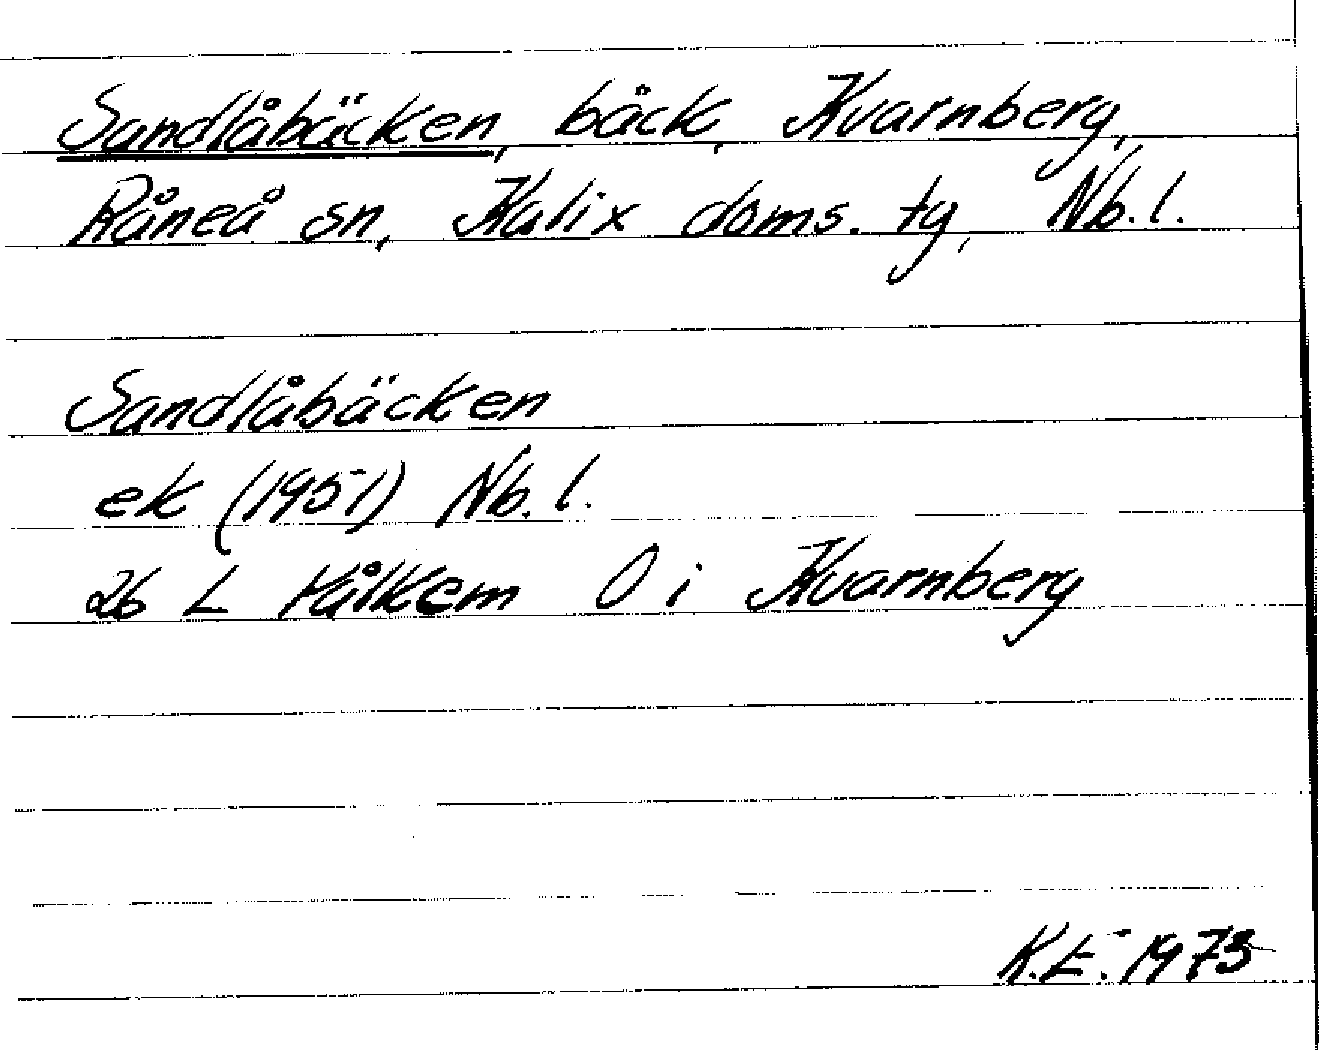 Sandlåbäcken, bäck, Kvarnberg,
Råneå sn, Kalix doms. tg, Nb. l.
Sandlåbäcken
ek (1951) Nb. l.
26 L Pålkem O i Kvarnberg
K.E. 1973